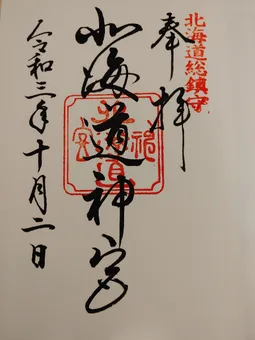 北海道総鎮守
奉拝
北海道神宮
北海道神宮
令和三年十月二日